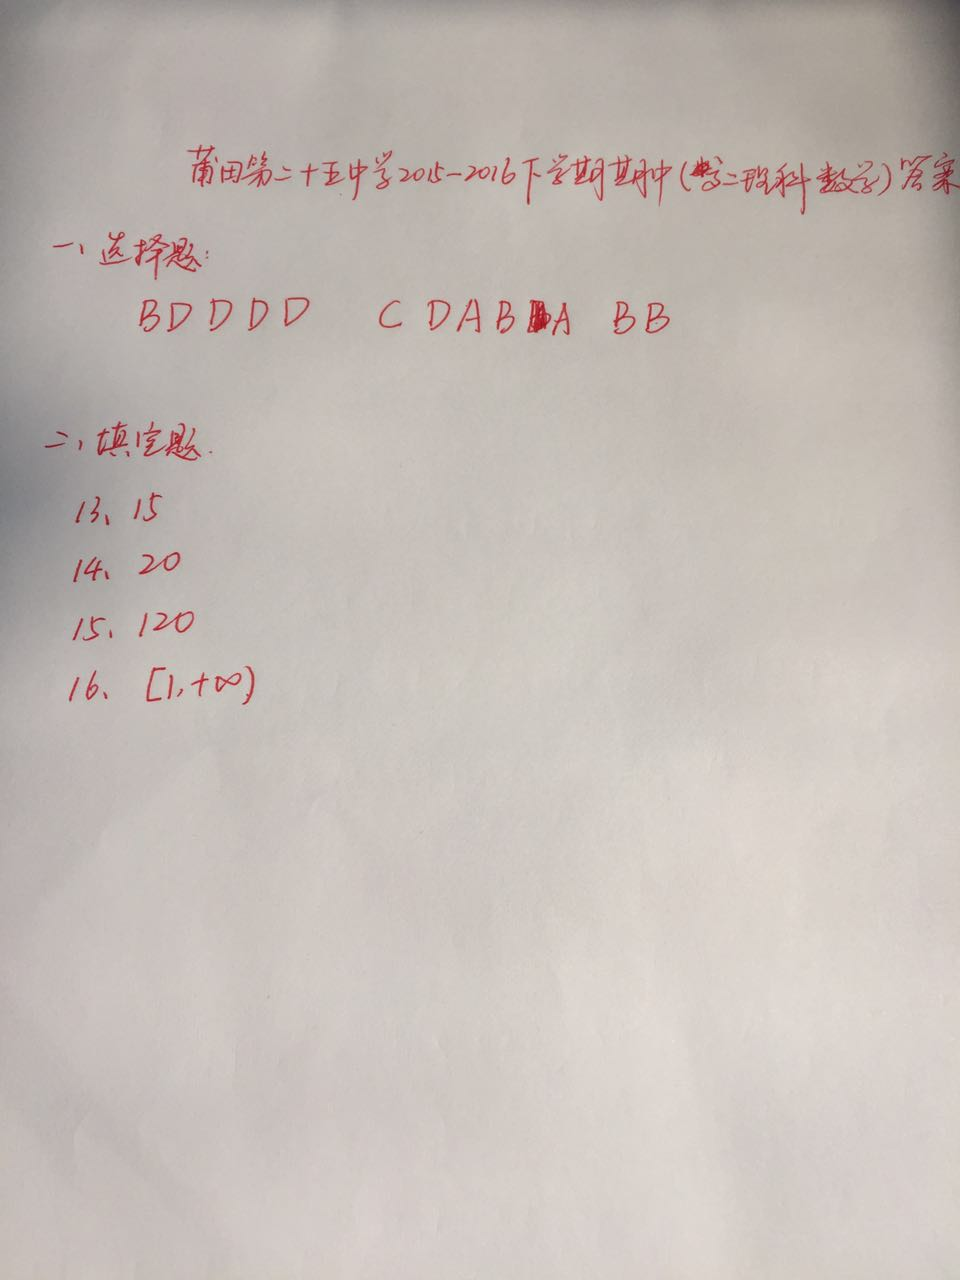 莆田第二十五中学2015-2016下学期期中(高二理科数学)答案
一、选择题:
BDDDD CDABA BB
二、填空题.
13、15
14、20
15、120
16、[1,+∞)